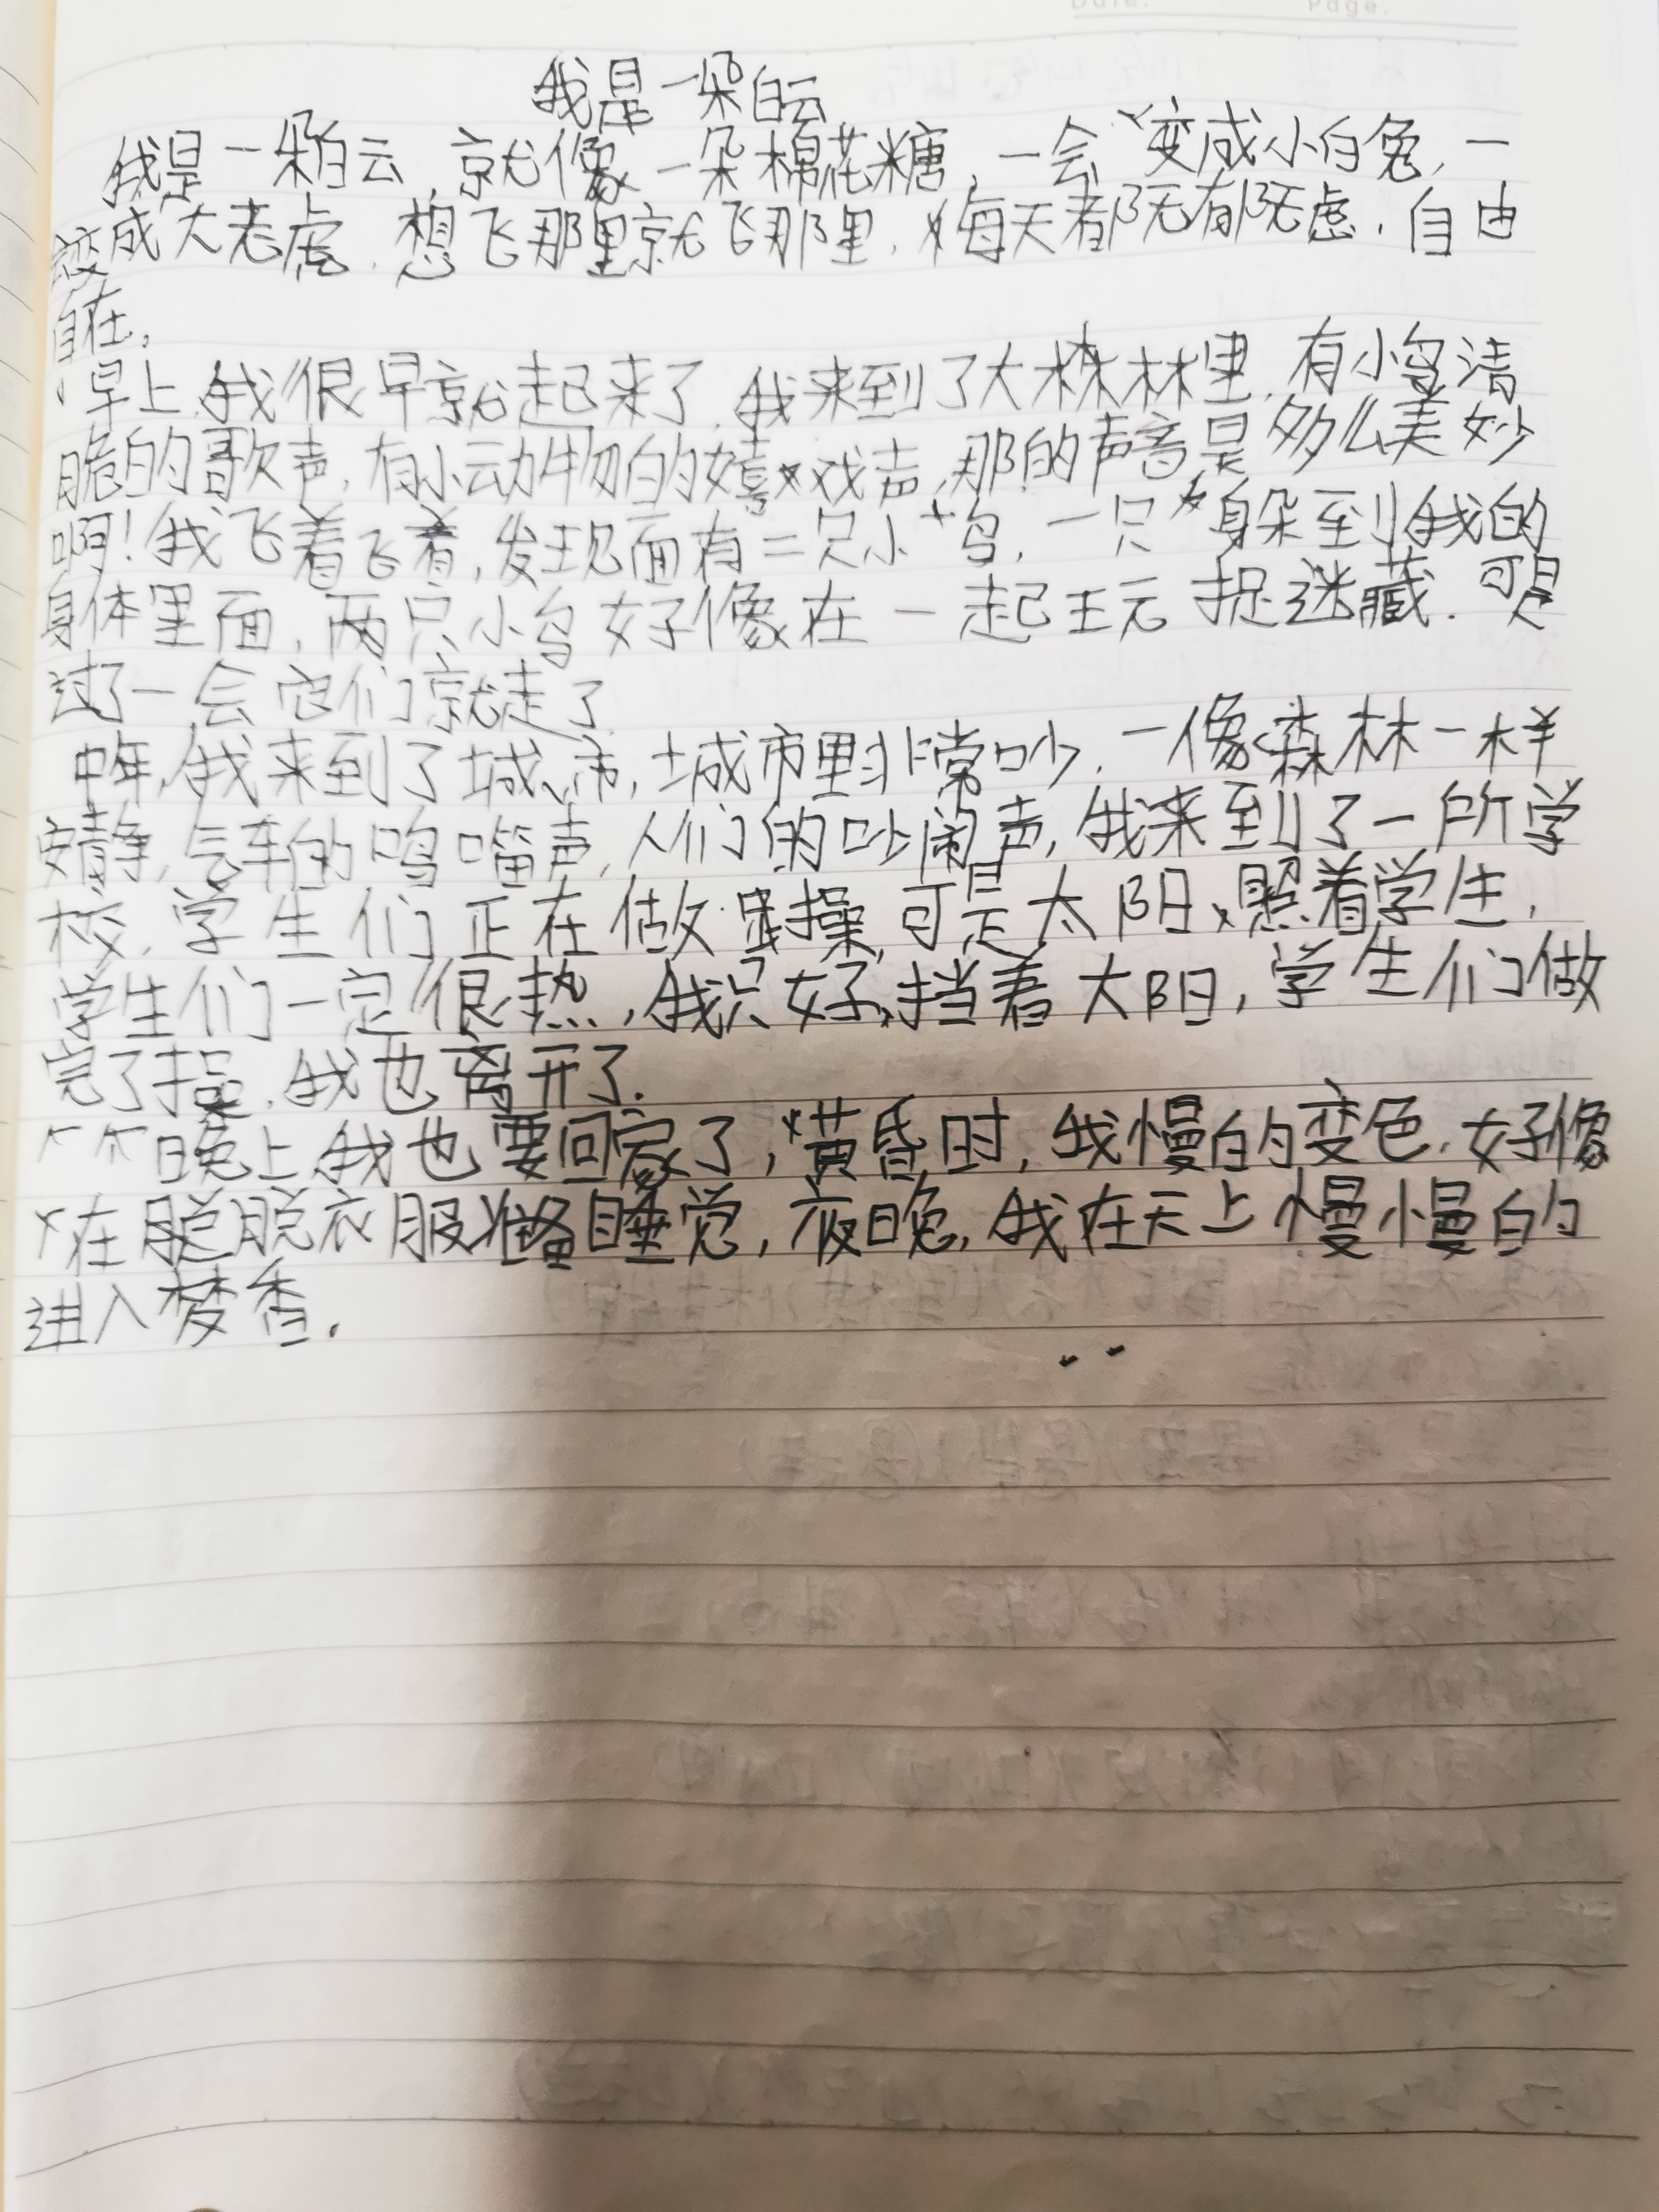 Date. Page.
我是一朵白云
我是一朵白云,就像一朵棉花糖,一会变成小白兔,一
变成大老虎.想飞那里就飞那里.每天都无有无虑.自由
自在,
早上,我很早就起来了,我来到了大森林里.有小鸟清
脆的歌声,有小动物的嬉戏声,那的声音是多么美妙
啊!我飞着飞着,发现面有二只小鸟,一只躲到我的
身体里面,两只小鸟好像在一起玩捉迷藏.可是
过了一会它们就走了
中年,我来到了城市,城市里非常吵.一像森林一样
安静,气车的鸣嘴声,人们的吵闹声,我来到了一所学
校,学生们正在做操,可是太阳照着学生,
学生们一定很热,我只好挡着大阳,学生们做
完了操,我也离开了.
晚上,我也要回家了,黄昏时,我慢的变色.好像
在脱脱衣服准备睡觉,夜晚,我在天上慢慢的
进入梦香.